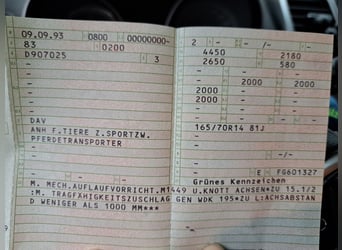 09.09.93 0800 00000000-
83 0200
D907025 3
-
-
-
-
DAV
ANH F.TIERE Z.SPORTZW.
PFERDETRANSPORTER
-
-
2 - - /-
4450 2180
2650 580
- -
- 2000 2000
2000 -
2000 -
-
165/70R14 81J
-
-
-/- -
E FG601327
Grünes Kennzeichen
M. MECH.AUFLAUFVORRICHT.M1449 U.KNOTT ACHSEN*ZU 15.1/2
:M. TRAGFÄHIGKEITSZUSCHLAG GEN WDK 195*ZU L:ACHSABSTAN
D WENIGER ALS 1000 MM***